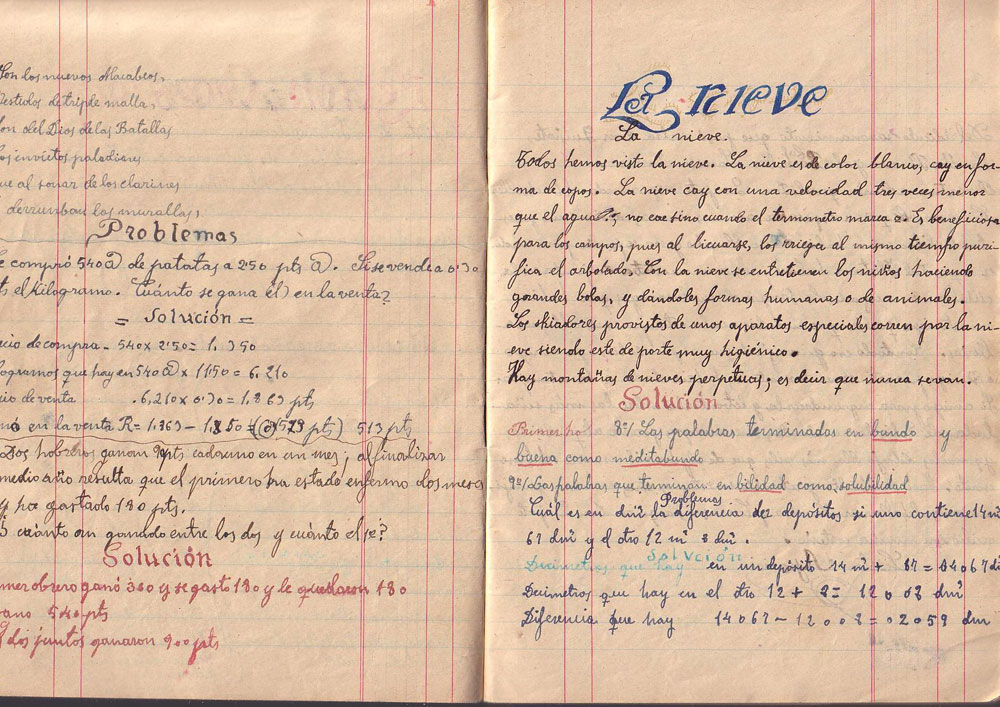 Son los nuevos Macabeos,
vestidos de triple malla,
son del Dios de las Batallas
los invictos paladines
que al sonar de los clarines
derrumban las murallas,
Problemas
compró 540 @ de patatas a 2'50 pts @. Si se vende a 0'30
el kilogramo. Cuánto se gana él) en la venta?
= Solución =
cio de compra - 540 x 2'50 = 1,350
logramos que hay en 540 @ x 11'50 = 6,210
cio de venta . 6,210 x 0'30 = 1,863 pts
en la venta R = 1,363 - 1,350 = pts) 513 pts
Dos hobreros ganan 90 pts cada uno en un mes; al finalizar
medio año resulta que el primero ha estado enfermo dos meses
y ha gastado 180 pts.
cuánto an ganado entre los dos y cuánto el 1º?
Solución
mer obrero ganó 360 y se gasto 180 y le quedaron 180
gano 540 pts
dos juntos ganaron 900 pts
La nieve
La nieve.
Todos hemos visto la nieve. La nieve es de color blanco, cay en for-
ma de copos. La nieve cay con una velocidad tres veces menor
que el agua; no cae sino cuando el termometro marca 0. Es beneficiosa
para los campos, pues al licuarse, los rriega al mismo tiempo puri-
fica el arbolado. Con la nieve se entretienen los niños haciendo
gorandes bolas, y dándoles formas humanas o de animales.
Los skiadores provistos de unos aparatos especiales corren por la ni-
eve siendo este de porte muy higiénico.
Hay montañas de nieves perpetuas; es decir que nunca se van.
Solución
Primer ho 8º/ Las palabras terminadas en bundo y
buena como meditabundo
9º/ Las palabras que terminan en bilidad como, solubilidad
Problemas
Cuál es en dm² la diferencia de 2 depósitos si uno contiene 14 m²
67 dm² y el otro 12 m² 8 dm².
Solución
Decimetros que hay en un depósito 14 m² + 67 = 14067 di
Decimetros que hay en el otro 12 + 8 = 12008 dm²
Diferencia que hay 14067 - 12008 = 02059 dm